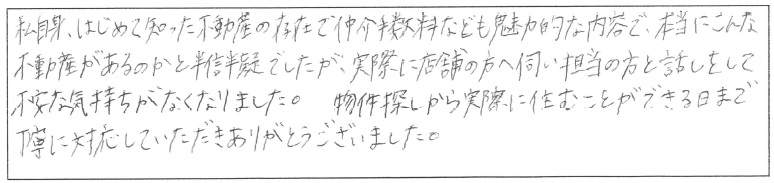 私自身、はじめて知った不動産の存在で仲介手数料なども魅力的な内容で、本当にこんな
不動産があるのかと半信半疑でしたが、実際に店舗の方へ伺い担当の方と話しをして
不安な気持ちがなくなりました。 物件探しから実際に住むことができる日まで
丁寧に対応していただきありがとうございました。